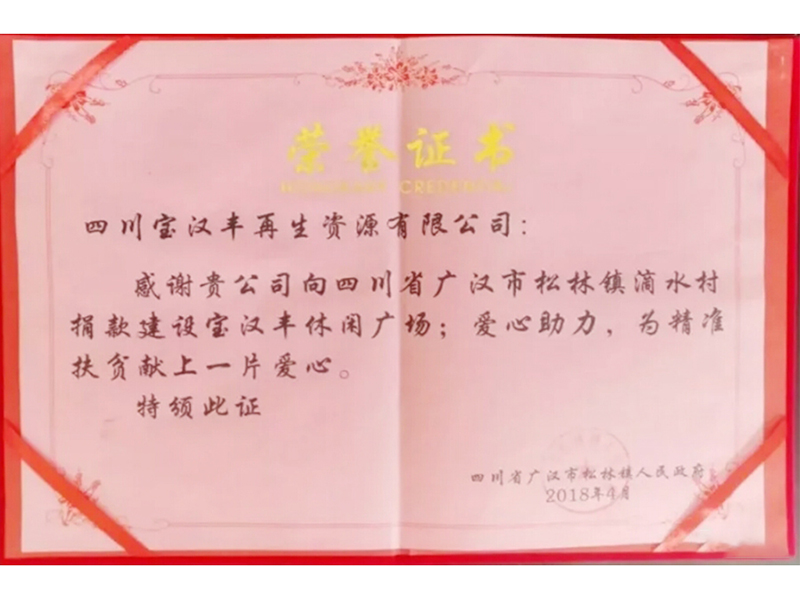 荣誉证书
四川宝汉丰再生资源有限公司：
感谢贵公司向四川省广汉市松林镇滴水村
捐款建设宝汉丰休闲广场；爱心助力，为精准
扶贫献上一片爱心。
特颁此证
四川省广汉市松林镇人民政府
2018年4月